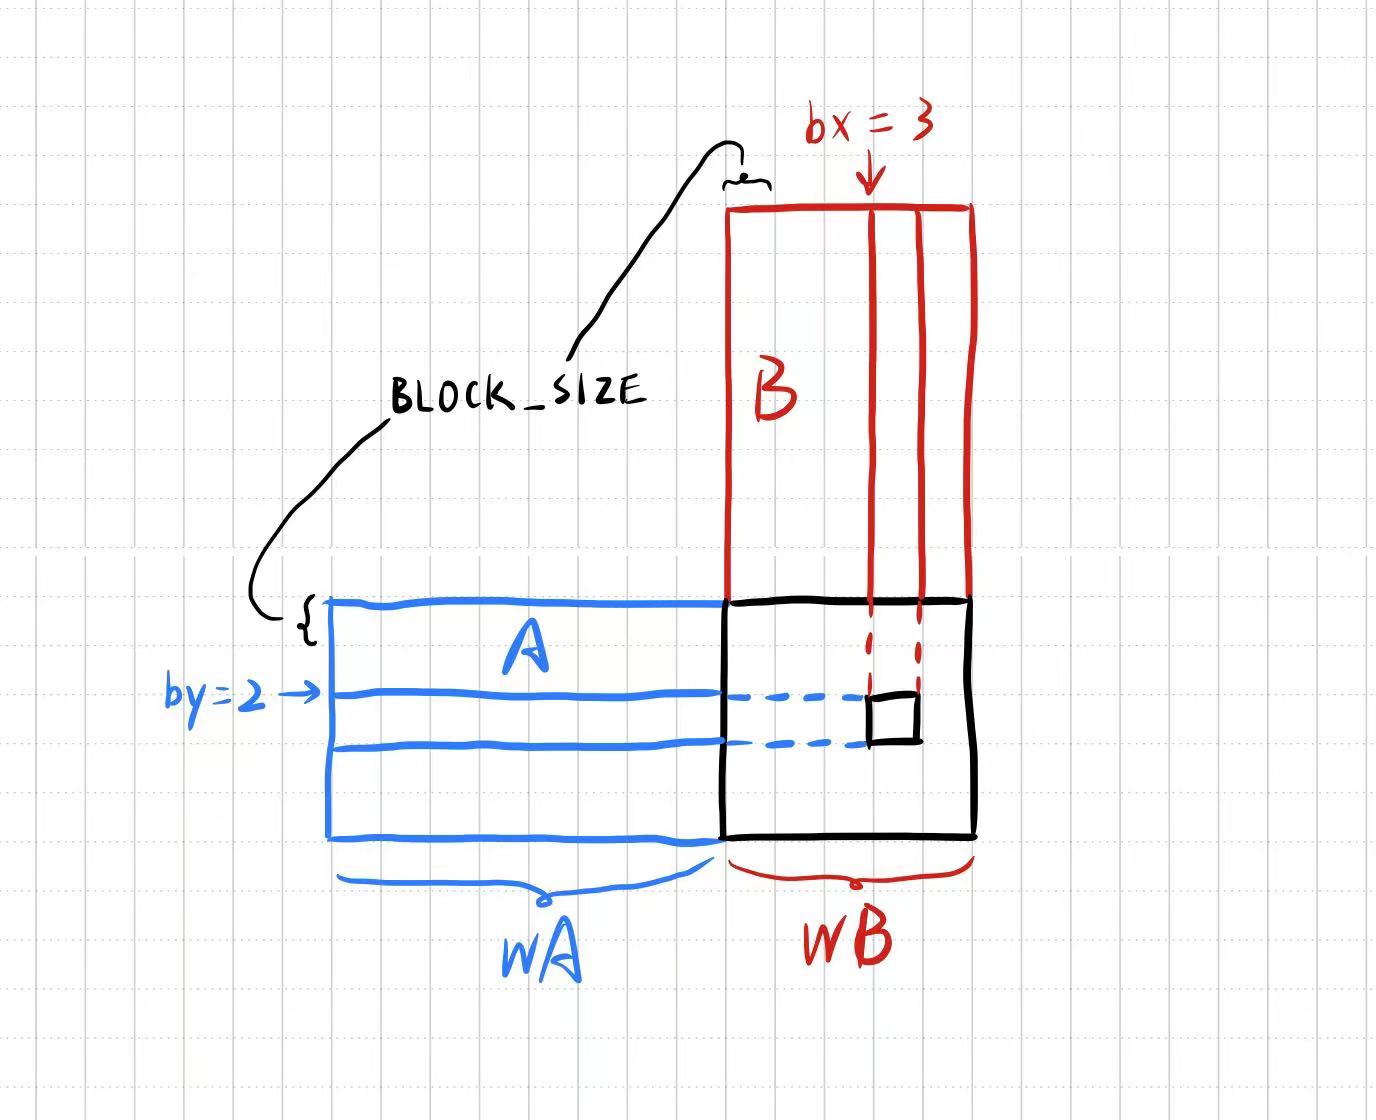 bx = 3
B
BLOCK_SIZE
A
by=2
wA
wB